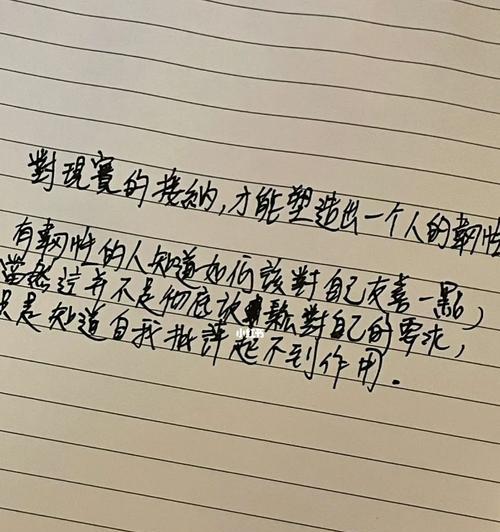 對現實的接納,才能塑造出一个人的韌性
有韌性的人知道如何該對自己友善一點,
當然這并不是彻底放鬆對自己的要求,
只是知道自我批評起不到作用.
小红书